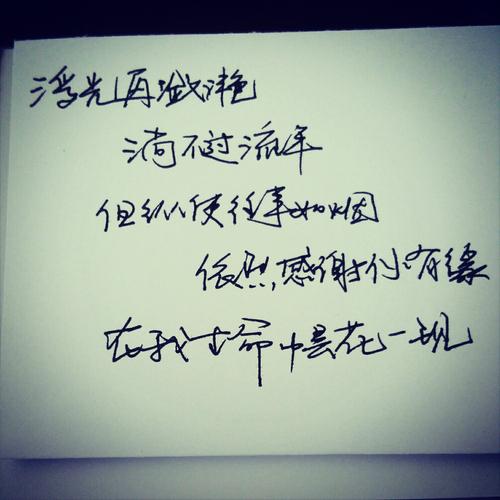 浮光再潋滟
淌不过流年
但纵使往事如烟
依然感谢你有缘
在我生命中昙花一现